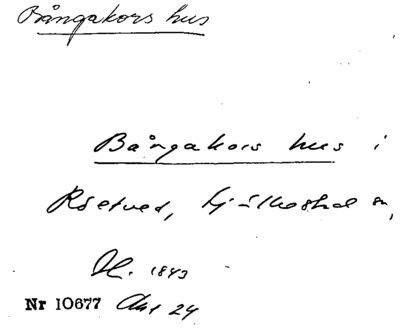 Bångakors hus
Bångakors hus i
Röetved, Hjälkeshol sn,
H. 1843
Nr 10677 Aug 24